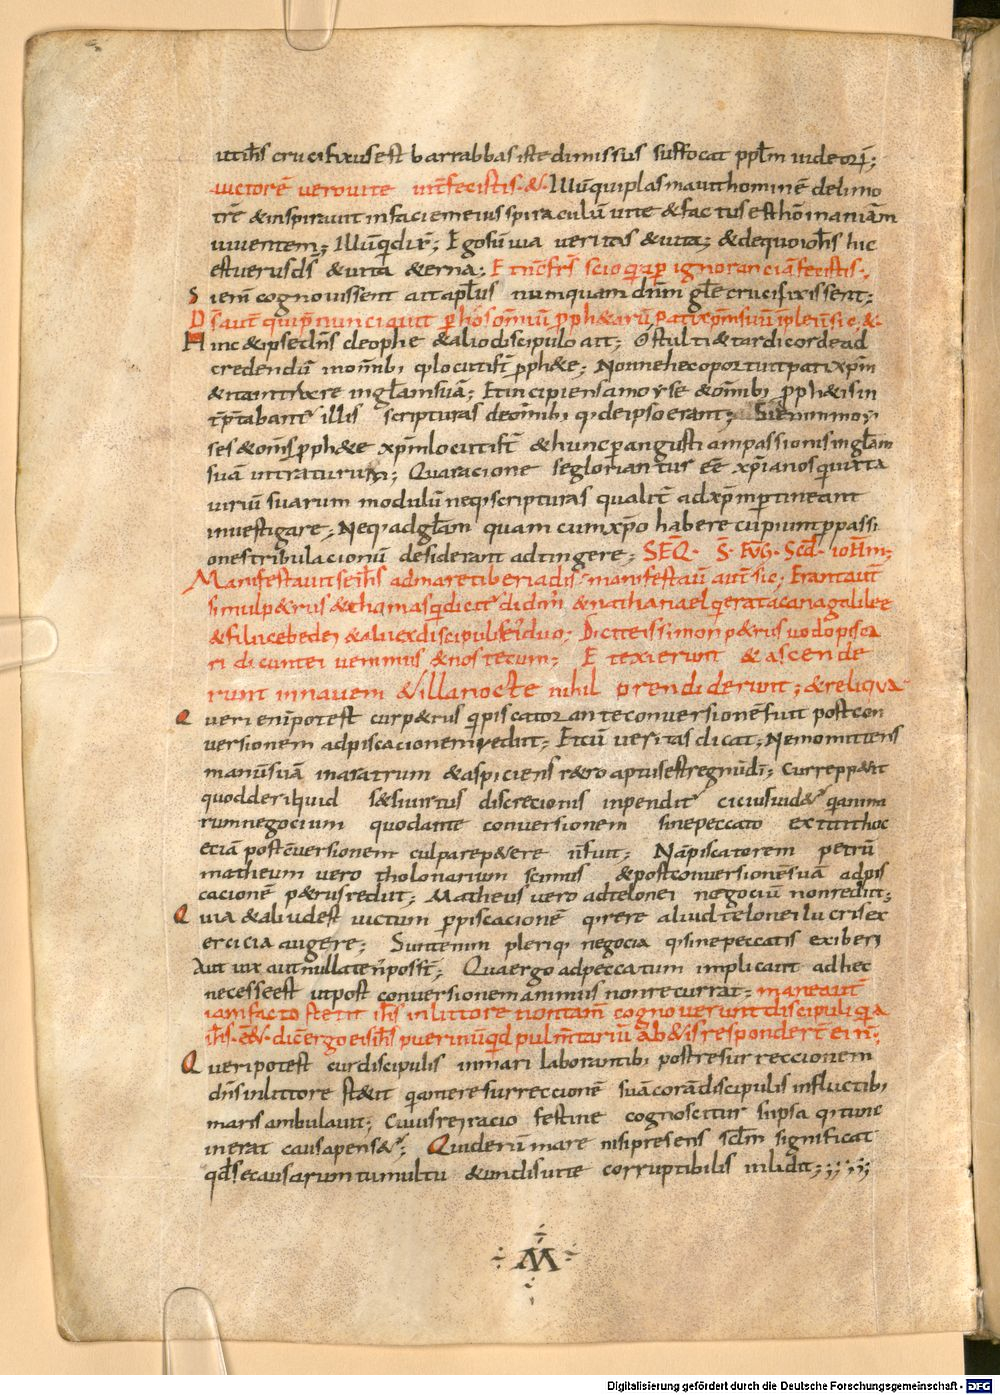 ut ih̄s crucifixus est barrabbas iste dimissus suffocat ppl̄m iudeorȝ;
auctorē vero vite int̄fecistis · &· Illūqui plasmavit hominē delimo
trē & inspiravit infaciemeius spiraculū vite & factus est hō inaniām
viventem; Illūqdix̄; Egosū via veritas & vita; & dequo ioh̄s hic
est verus d̄s & vita & erna; E t nc̄ frs̄ scio qa p ignoranciā fecistis·
S ienī cognovissent ait apl̄us numquam dn̄m gle crucifixissent;
D s̄ aut̄ qui pnunciavit p hos omniū pph&arū pati xp̄m suū īplev̄ sic &·
H inc & ipse dn̄s cleophe & alio discipulo ait; O stulti & tardi corde ad
credendū in om̄ibȝ q̄ locuti st̄ pph&e; Nonne hec oportuit pati xp̄m
& ita intrare in gl̄am suā; Et incipiens a moyse & om̄ibȝ pph&is in
t̄p̄tabant̄ illis scripturas de om̄ibȝ q̄ de ipso erant; Si enim moy
ses & om̄s pph&e xp̄m locuti st̄ & hunc p angusti am passionis in gl̄am
suā intraturum; Qua racione se gloriantur ee xp̄ianos qui iuxta
viriū suarum modulū neqȝ scripturas qualit̄ ad xp̄m ptineant
investigare; Neqȝ ad gl̄am quam cum xp̄o habere cupiunt p passi
ones tribulacionū desiderant adtingere; SEQ̄· S̄· EVG· Scd̄· ioH̄m;
Manifestavit se ih̄s ad mare tiberiadis· manifestav̄ aut̄ sic; Erant aut̄
simul p&rus & thomas q dicit̄ didim̄ & nathanael q erat a cana galilee
& filii cebedei & alii ex discipulis ei duo; Dicit eis simon p&rus vado pisca
ri dicunt ei venimus & nos tecum; E t exierunt & ascende
runt in navem & illa nocte nihil prendiderunt; & reliqva·
Q veri enī potest cur p&rus q piscator ante conversionē fuit post con
versionem ad piscacionem rediit; Et cū veritas dicat; Nemo mittens
manū suā in aratrum & aspiciens r&ro aptus est regnū dī; cur rep&iit
quod deriliquid s& si virtus discrecionis inpendit̄ cicius vid&ᵣ q̄a nim
rum negocium quod ante conversionem sine peccato extitit hoc
eciā post cversionem culpa rep&ere n̄ fuit; Nā piscatorem petrū
matheum vero tholonarium scimus & post conversionē suā ad pis
cacionē p&rus rediit; Matheus vero ad telonei negociū non rediit;
Q via & aliud est victum p piscacionē q̄rere aliud telonei lucris ex
ercicia augere; Sunt enim pleriqȝ negocia q̄ sine peccatis exiberi
Aut vix aut nullaten̄ poss̄t; Qua ergo ad peccatum implicant ad hec
necesse est ut post conversionem animus non recurrat; mane aut̄
iam facto stetit ih̄s in littore non tam̄ cognoverunt discipuli q̄a
ih̄s· ē· &· dic̄ ergo eis ih̄s pueri nūq̄d pulm̄tariū ab&is respondert̄ ei n̄;
Q veri potest cur discipulis in mari laborantibȝ post resurreccionem
dn̄s in littore st&it q̄ ante resurreccionē suā corā discipulis in fluctibȝ
maris ambulavit; cuius rei racio festine cognoscitur si ipsa q̄ tunc
inerat causa pens&ᵣ; Quid enī mare nisi presens scl̄m significat
qd̄ se causarum tumultu & undis vite corruptibilis inlidit;;;;;;
·M·
Digitalisierung gefördert durch die Deutsche Forschungsgemeinschaft - DFG